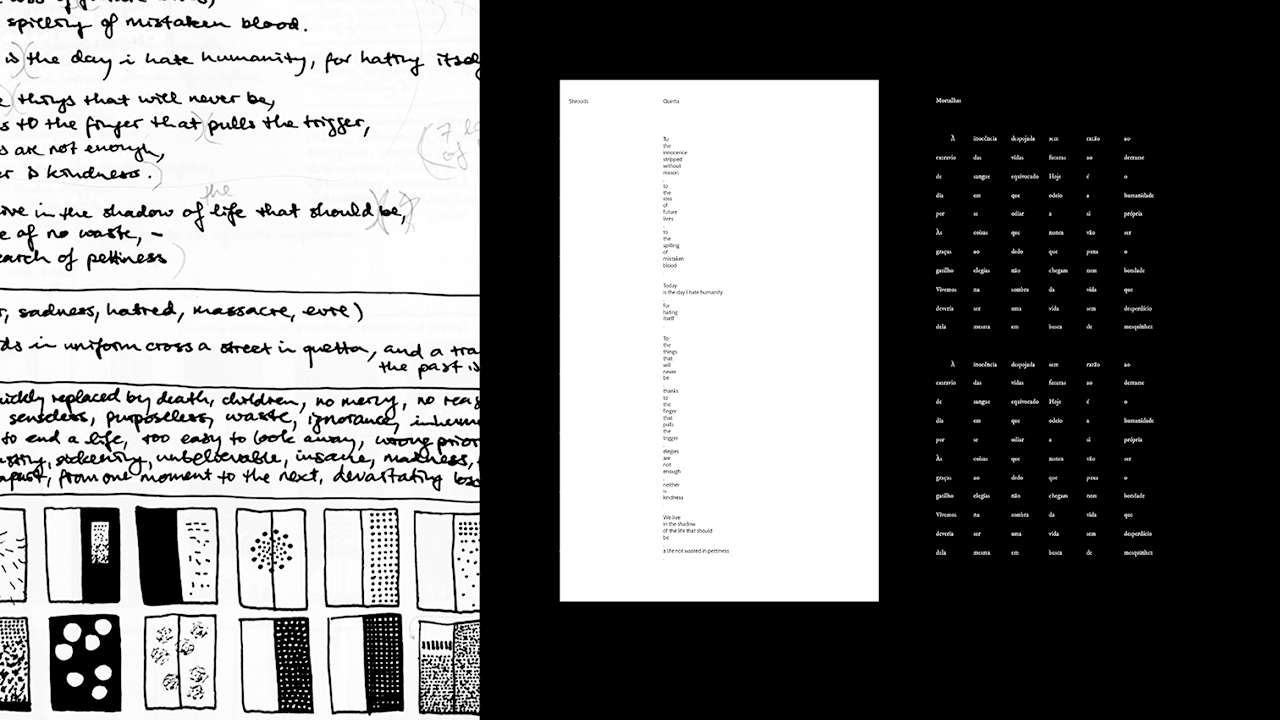 spilling of mistaken blood.
is the day i hate humanity, for hating itself
things that will never be,
to the finger that pulls the trigger,
are not enough,
is kindness.
the
in the shadow of life that should be,
of no waste, -
of pettiness
sadness, hatred, massacre,
in uniform cross a street in quetta, and a
the past is
replaced by death, children, no mercy, no
senseless, purposeless, waste, ignorance,
to end a life, too easy to look away, wrong
sickening, unbelievable, insane, madness,
from one moment to the next, devastating
Shrouds
Quetta
To
the
innocence
stripped
without
reason
,
to
the
loss
of
future
lives
,
to
the
spilling
of
mistaken
blood
.
Today
is the day I hate humanity
,
for
hating
itself
.
To
the
things
that
will
never
be
,
thanks
to
the
finger
that
pulls
the
trigger
,
elegies
are
not
enough
,
neither
is
kindness
.
We live
in the shadow
of the life that should
be
,
a life not wasted in pettiness
.
Mortalhas
À inocência despojada sem razão ao
extravio das vidas futuras ao derrame
de sangue equivocado Hoje é o
dia em que odeio a humanidade
por se odiar a si própria
Às coisas que nunca vão ser
graças ao dedo que puxa o
gatilho elegias não chegam nem bondade
Vivemos na sombra da vida que
deveria ser uma vida sem desperdício
dela mesma em busca de mesquinhez
À inocência despojada sem razão ao
extravio das vidas futuras ao derrame
de sangue equivocado Hoje é o
dia em que odeio a humanidade
por se odiar a si própria
Às coisas que nunca vão ser
graças ao dedo que puxa o
gatilho elegias não chegam nem bondade
Vivemos na sombra da vida que
deveria ser uma vida sem desperdício
dela mesma em busca de mesquinhez